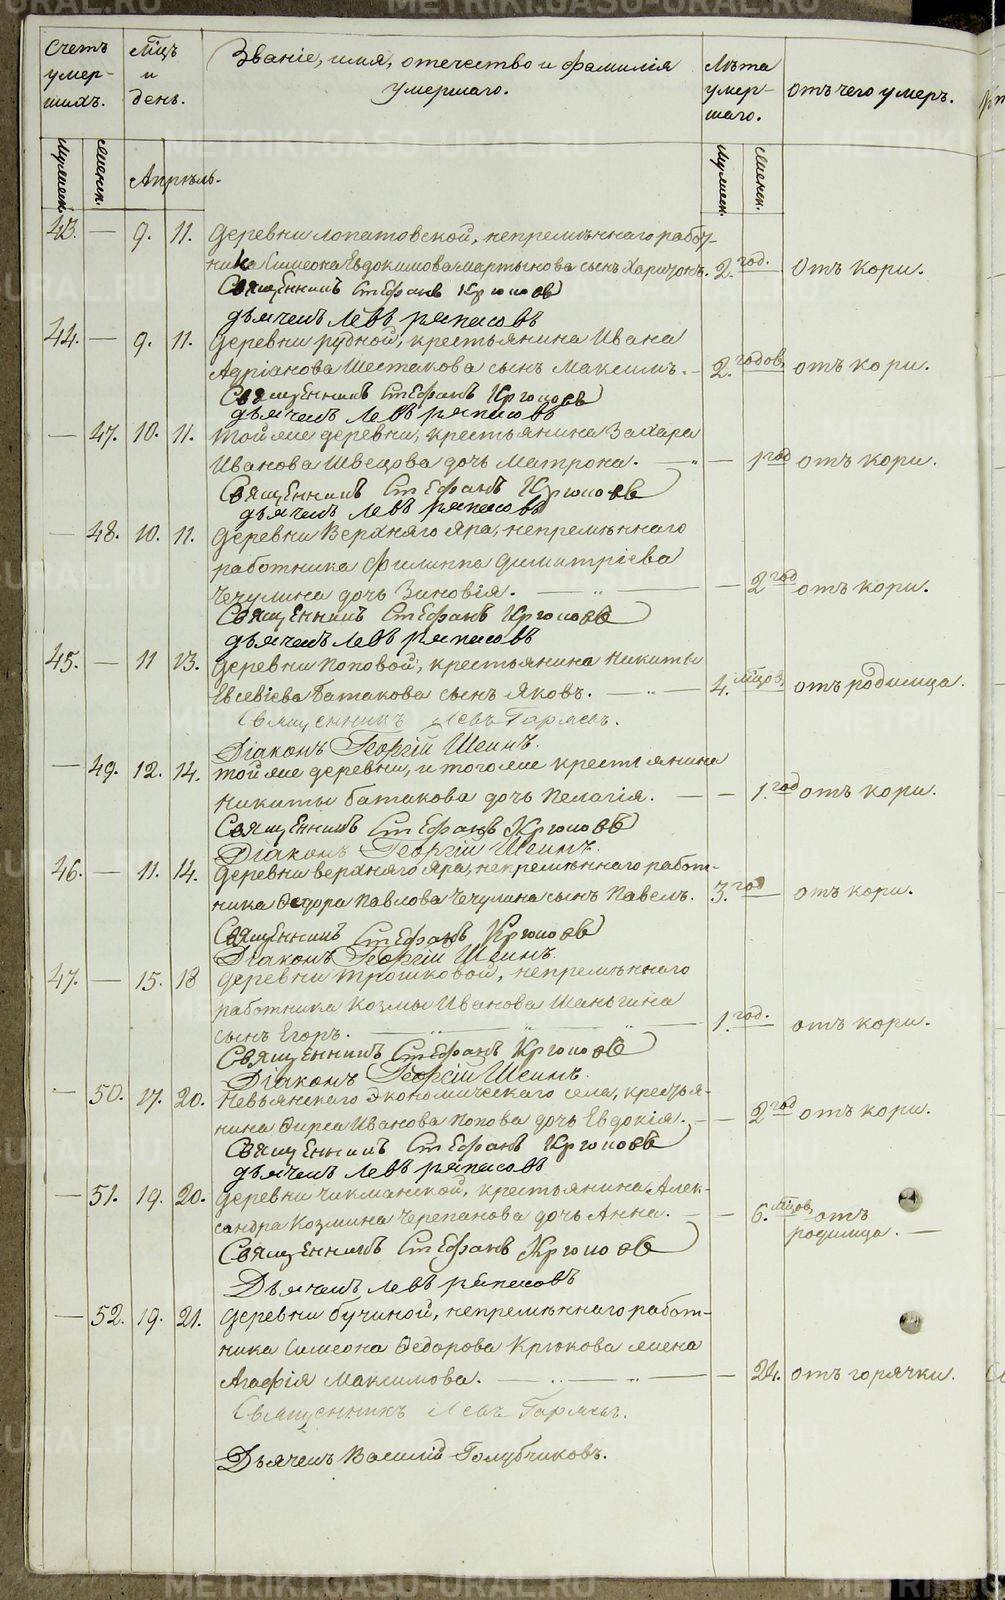 Счетъ умершихъ.
Мцъ и день.
Званіе, имя, отечество и фамилія умершаго.
Лѣта умершаго.
Отъ чего умеръ.
Мужеск. Женск.
Апрѣль.
Мужеск. Женск.
43. — 9. 11. Деревни Лопатовской, непремѣннаго работ-
ника Симеона Евдокимова Мартынова сынъ Харитонъ. 2. год. — отъ кори.
Священникъ Стефанъ Крюковъ
Дьячекъ Левъ Ряпасовъ
44. — 9. 11. Деревни Рудной, крестьянина Ивана
Адріанова Шестакова сынъ Максимъ. — 2. годов. отъ кори.
Священникъ Стефанъ Крюковъ
Дьячекъ Левъ Ряпасовъ
— 47. 10. 11. Той же деревни, крестьянина Захара
Иванова Швецова дочь Матрона. — — 1 год отъ кори.
Священникъ Стефанъ Крюковъ
Дьячекъ Левъ Ряпасовъ
— 48. 10. 11. Деревни Верхняго Яра, непремѣннаго
работника Филиппа Димитріева
Чечулина дочь Зиновія. — — 2 год отъ кори.
Священникъ Стефанъ Крюковъ
Дьячекъ Левъ Ряпасовъ
45. — 11 13. Деревни Поповой, крестьянина Никиты
Евсевіева Батакова сынъ Яковъ. — 4. мцов. отъ родимца.
Священникъ Левъ
Діаконъ Георгій Шеинъ.
— 49. 12. 14. Той же деревни, и того же крестьянина
Никиты Батакова дочь Пелагія. — — 1. год отъ кори.
Священникъ Стефанъ Крюковъ
Діаконъ Георгій Шеинъ.
46. — 11. 14. Деревни Верхняго Яра, непремѣннаго работ-
ника Ѳедора Павлова Чечулина сынъ Павелъ. 3. год — отъ кори.
Священникъ Стефанъ Крюковъ
Діаконъ Георгій Шеинъ.
47. — 15. 18 Деревни Трошковой, непремѣннаго
работника Козмы Иванова Шаньгина
сынъ Егоръ. — 1. год. — отъ кори.
Священникъ Стефанъ Крюковъ
Діаконъ Георгій Шеинъ.
— 50. 17. 20. Невьянскаго Экономическаго села, крестья-
нина Ѳирса Иванова Попова дочь Евдокія. — — 2 год отъ кори.
Священникъ Стефанъ Крюковъ
Дьячекъ Левъ Ряпасовъ
— 51. 19. 20. Деревни Чикманской, крестьянина Алек-
сандра Козмина Черепанова дочь Анна. — — 6. мцов. отъ
родимца. —
Священникъ Стефанъ Крюковъ
Дьячекъ Левъ Ряпасовъ
— 52. 19. 21. Деревни Бучиной, непремѣннаго работ-
ника Симеона Ѳедорова Крюкова жена
Агафія Максимова. — — 24. отъ горячки.
Священникъ Левъ
Дьячекъ Василій Голубчиковъ.
METRIKI.GASO-URAL.RU